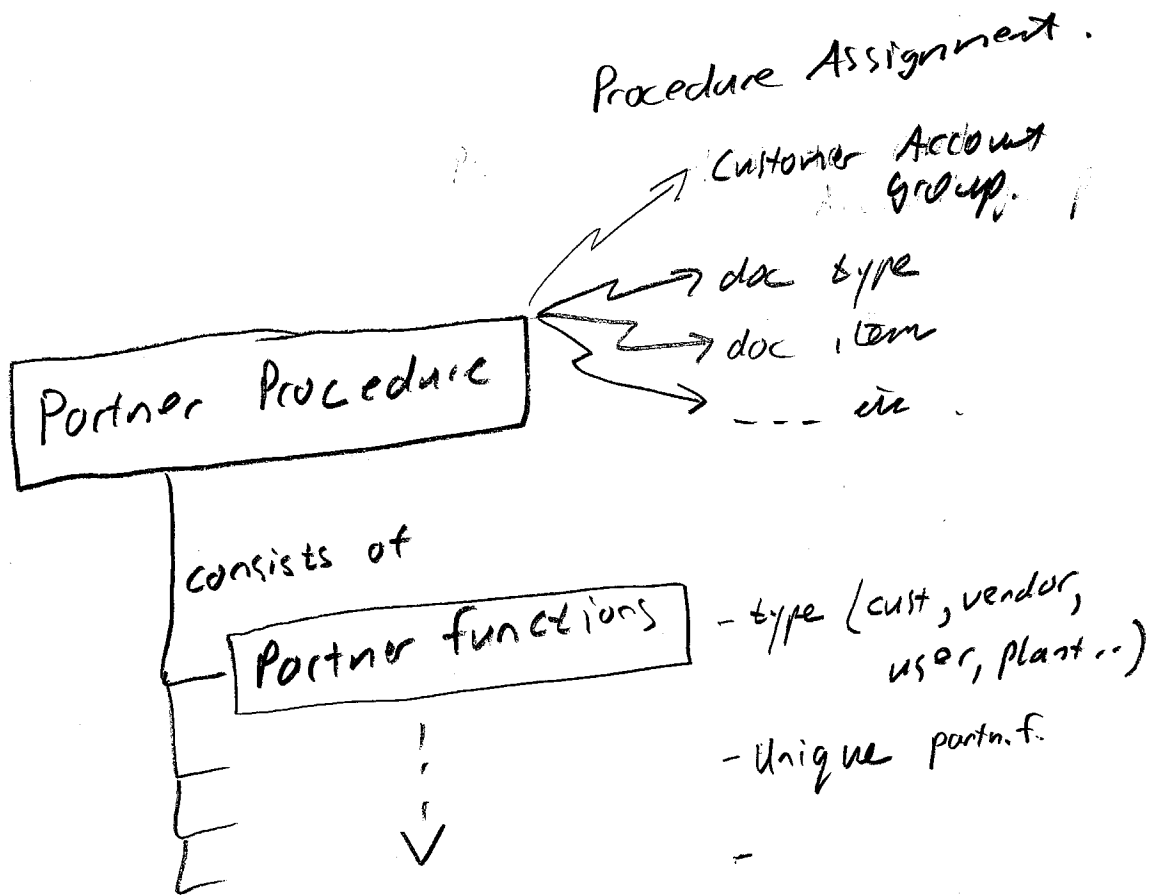 Procedure Assignment.
Customer Account
group.
doc type
doc item
---- etc .
Partner Procedure
consists of
Partner functions
- type (cust, vendor,
user, plant..)
- Unique partn.f.
-